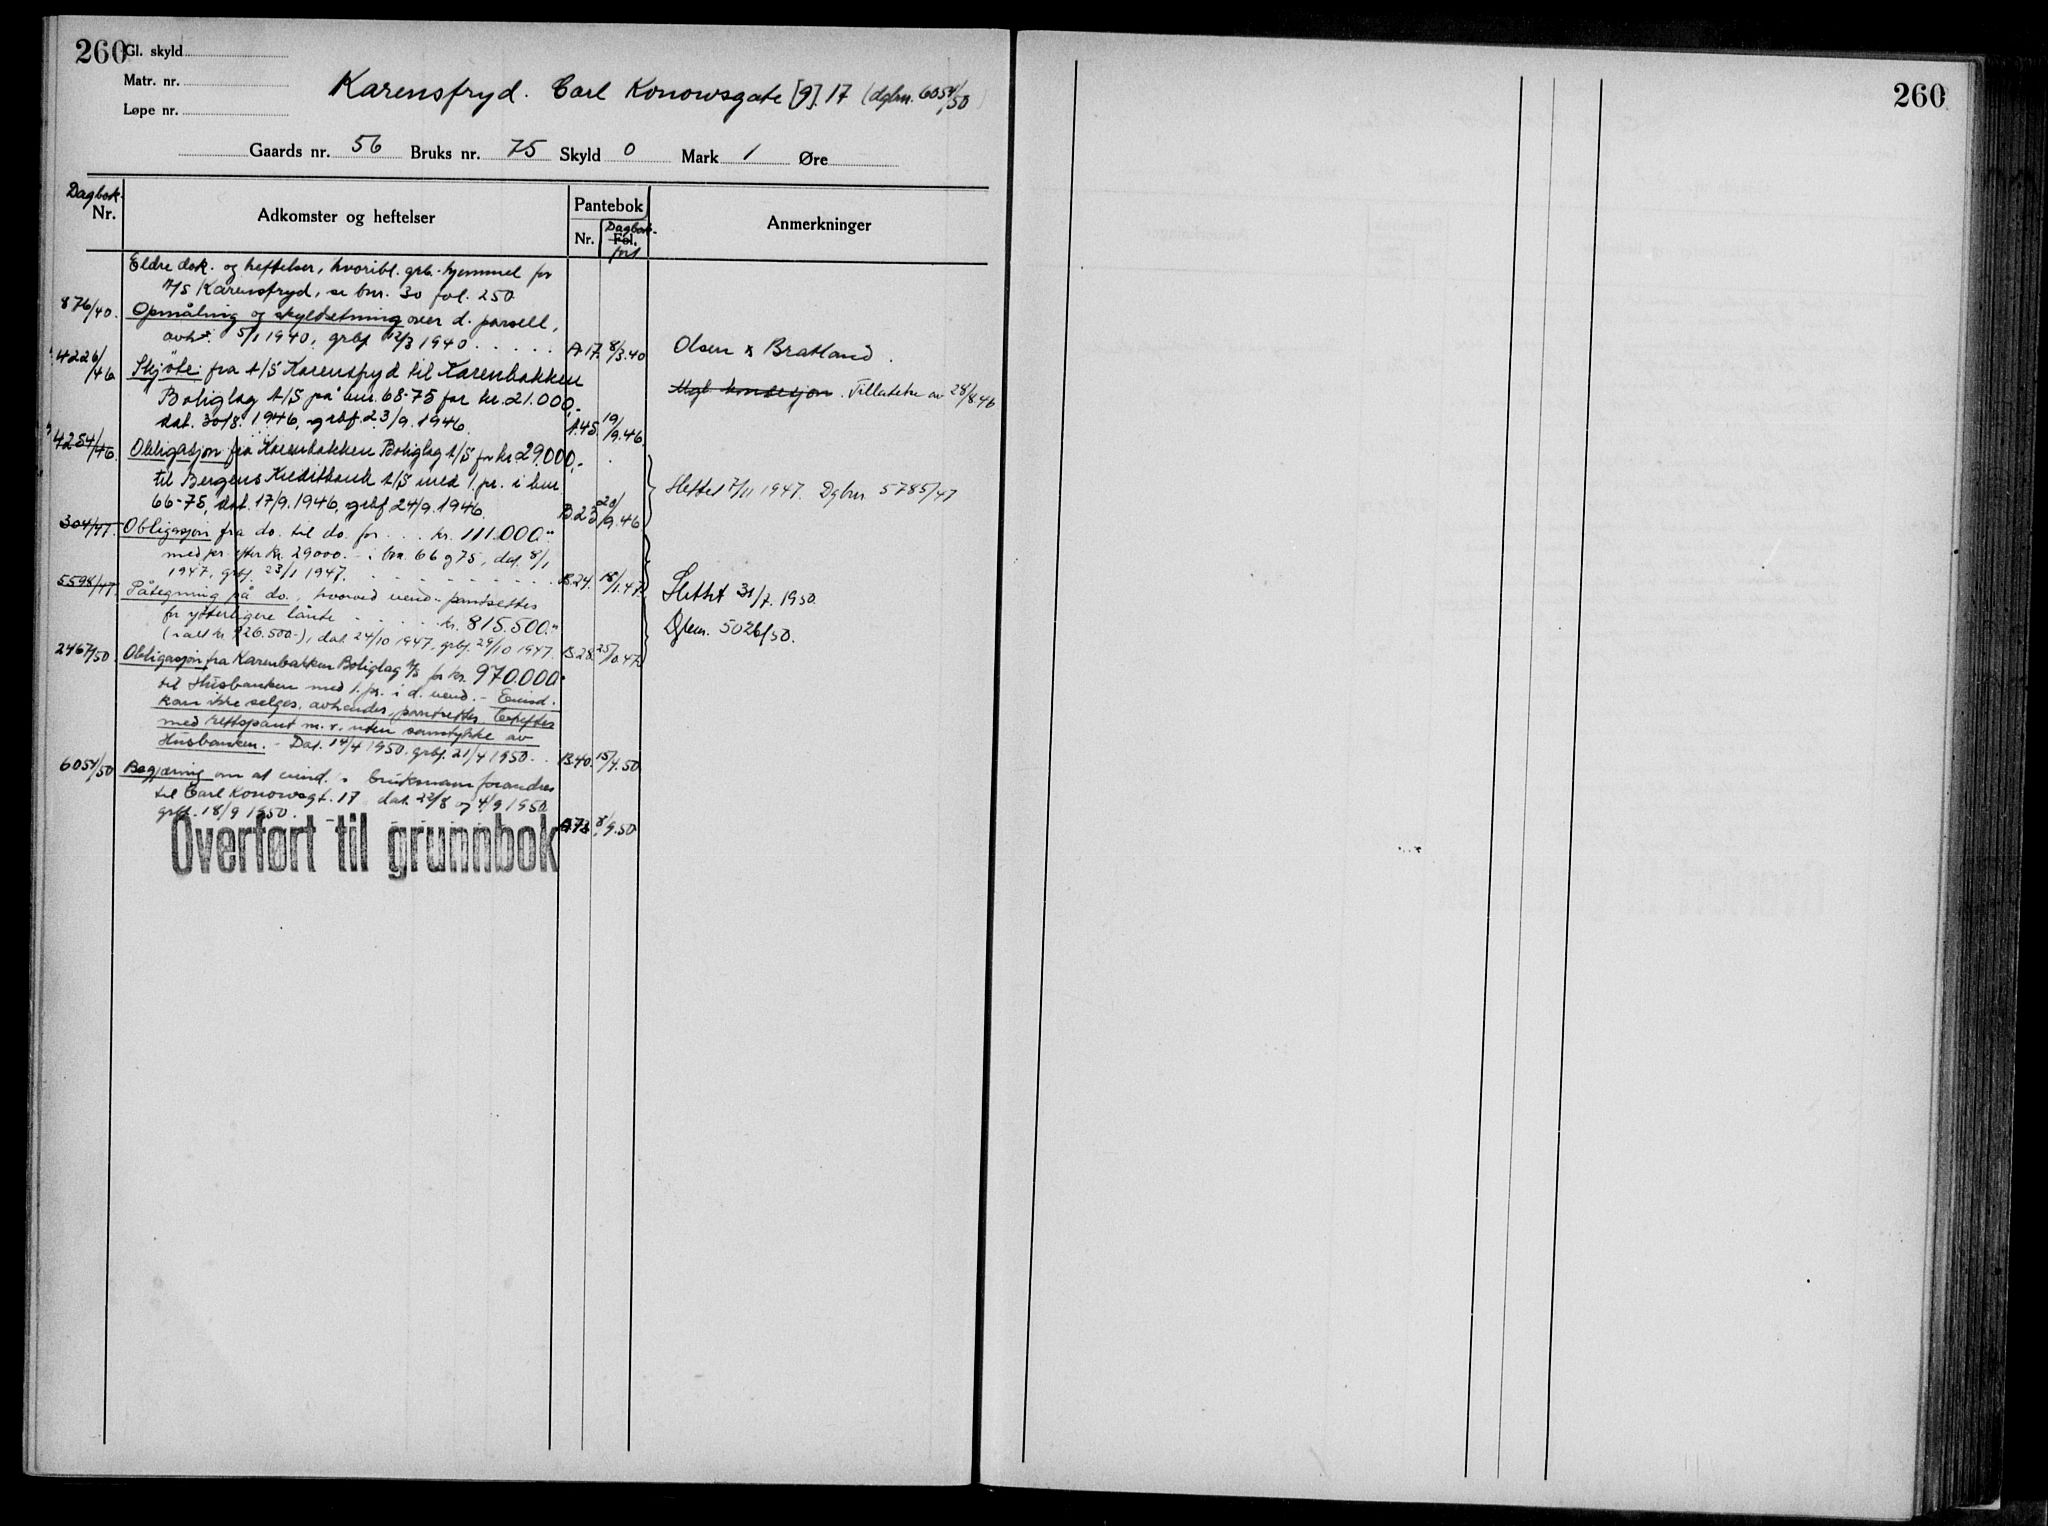 260
Gl. skyld
Matr. nr.
Løpe nr.
Karensfryd. Carl Konowsgate [9]. 17 (dgbnr. 6054/50)
Gaards nr. 56 Bruks nr. 75 Skyld 0 Mark 1 Øre
Dagbok-
Nr.
Adkomster og heftelser
Pantebok
Nr.
Dagbok-
Fol.
ført
Anmerkninger
Eldre dok. og heftelser, hvoribl. grb. hjemmel for
A/S Karensfryd, se bnr. 30 fol. 250.
876/40. Opmåling og skyldsetning over d. parsell,
avh. 5/1 1940, grbf 12/3 1940 A 17. 8/3.40 Olsen & Bratland.
4226/46 Skjøte fra A/S Karensfryd til Karenbakken
Boliglag A/S på bnr. 68-75 for kr. 21.000,-
dat. 30/8. 1946, grbf. 23/9. 1946. A.45. 19/9.46.
Mgl. konsesjon. Tillatelse av 28/8.46
4254/46. Obligasjon fra Karenbakken Boliglag A/S for kr. 29.000,-
til Bergens Kreditbank A/S med 1. pr. i bnr
66-75, dat. 17/9.1946, grbf 24/9.1946. B.23 20/9.46.
Slettet 7/11 1947. Dgbnr. 5785/47
304/47. Obligasjon fra do. til do. for . . . kr. 111.000."
med pr. efter kr. 29000.- i bnr. 66 og 75, dat. 8/1
1947, grbf. 23/1 1947. B.24. 18/1.47.
5598/47. Påtegning på do., hvorved eiend. pantsettes
for ytterligere lånte kr. 815.500."
(ialt kr. 926.500.-), dat. 24/10 1947, grbf. 29/10 1947. B.28. 25/10.47.
Slettet 31/7. 1950.
Dgbnr. 5026/50.
2467/50. Obligasjon fra Karenbakken Boliglag A/S for kr. 970.000."
til Husbanken med 1. pr. i d. eiend. - Eiend.
kan ikke selges, avhendes, pantsettes,
med rettspant m.v. uten samtykke av
Husbanken. - Dat. 14/4 1950, grbf. 21/4 1950. B.40. 15/4.50.
6054/50 Begjæring om at eiend. s bruksnavn forandres
til Carl Konowsgt. 17 dat. 22/8 og 4/9 1950
grbf. 18/9 1950. A73 8/9.50
Overført til grunnbok
260